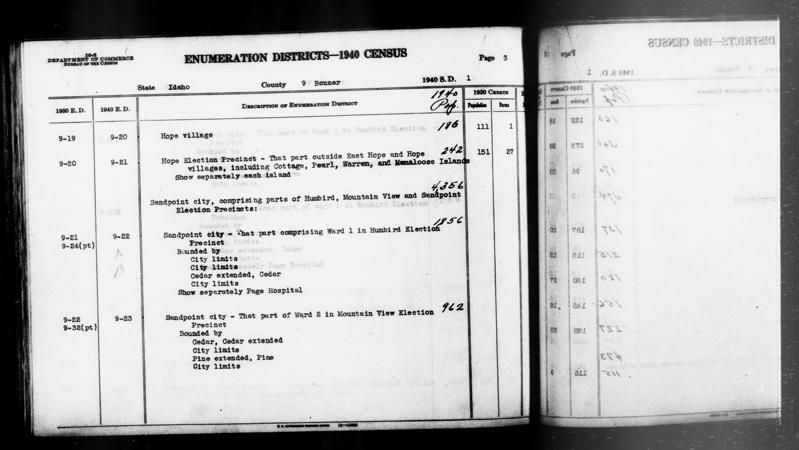 16-6
DEPARTMENT OF COMMERCE
BUREAU OF THE CENSUS
ENUMERATION DISTRICTS—1940 CENSUS
Page 3
State Idaho County 9 Bonner 1940 S.D. 1
1930 E. D. 1940 E. D. DESCRIPTION OF ENUMERATION DISTRICT 1940 Pop. 1930 CENSUS
Population Farms
9-19 9-20 Hope village 186 111 1
9-20 9-21 Hope Election Precinct - That part outside East Hope and Hope 242 151 27
villages, including Cottage, Pearl, Warren, and Memaloose Islands
Show separately each island
4,356
Sandpoint city, comprising parts of Humbird, Mountain View and Sandpoint
Election Precincts:
1856
9-21 9-22 Sandpoint city - That part comprising Ward 1 in Humbird Election
9-24(pt) Precinct
A Bounded by
City limits
B City limits
Cedar extended, Cedar
City limits
Show separately Page Hospital
962
9-22 9-23 Sandpoint city - That part of Ward 2 in Mountain View Election
9-32(pt) Precinct
Bounded by
Cedar, Cedar extended
City limits
Pine extended, Pine
City limits